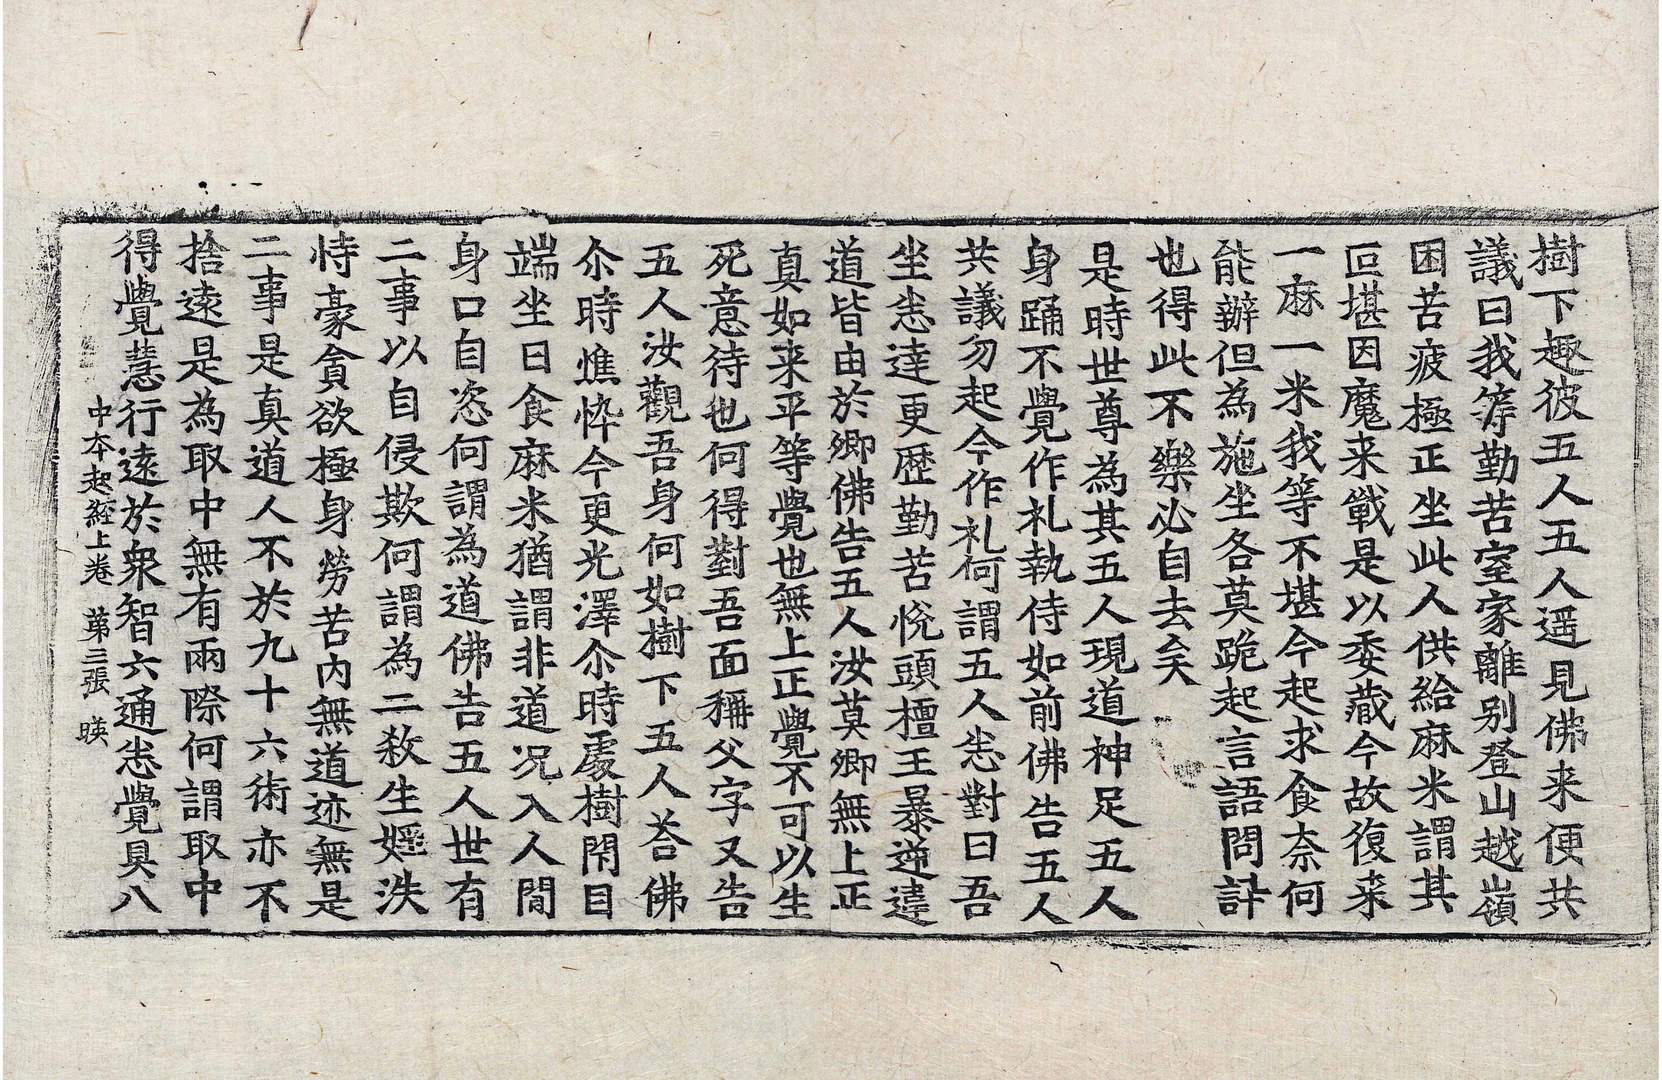 樹下趣彼五人五人遥見佛来便共
議曰我等勤苦室家離别登山越嶺
困苦疲極正坐此人供給麻米謂其
叵堪因魔来戰是以委藏今故復来
一麻一米我等不堪今起求食奈何
能辦但為施坐各莫跪起言語問訊
也得此不樂必自去矣
是時世尊為其五人現道神足五人
身踊不覺作礼執侍如前佛告五人
共議勿起今作礼何謂五人悉對曰吾
坐悉達更歴勤苦悅頭檀王暴逆違
道皆由於卿佛告五人汝莫卿無上正
真如来平等覺也無上正覺不可以生
死意待也何得對吾面稱父字又告
五人汝觀吾身何如樹下五人荅佛
尒時憔悴今更光澤尒時處樹閇目
端坐日食麻米猶謂非道况入人間
身口自恣何謂為道佛告五人世有
二事以自侵欺何謂為二殺生婬泆
恃豪貪欲極身勞苦内無道迹無是
二事是真道人不於九十六術亦不
捨遠是為取中無有兩際何謂取中
得覺慧行遠於衆智六通悉覺具八
中本起經上卷 第三張 暎